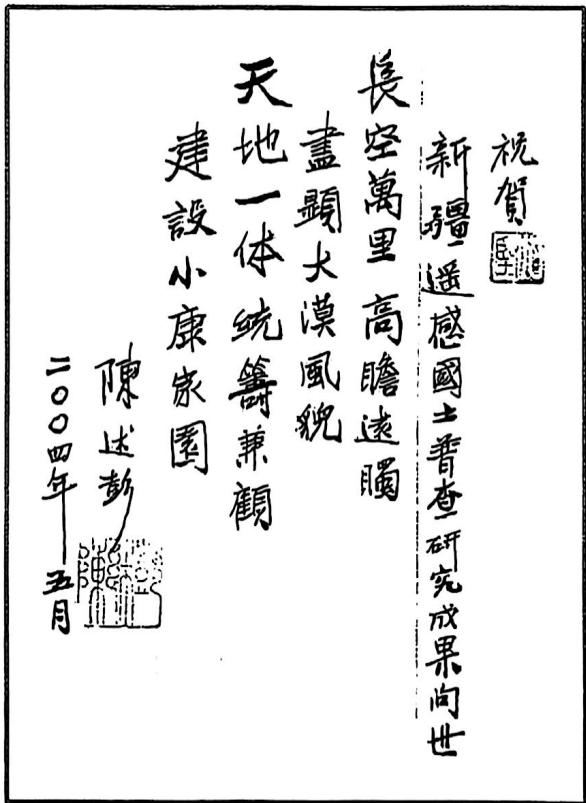 祝賀
新疆遥感國土普查研究成果向世
長空萬里 高瞻遠矚
盡顯大漠風貌
天地一体 統籌兼顧
建設小康家園
陳述彭
二〇〇四年五月